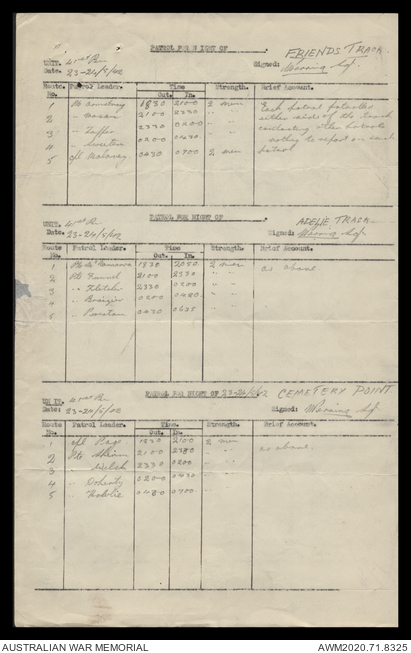 PATROL FOR NIGHT OF
FRIENDS TRACK
UNIT.
Date. 23-24/5/02
Signed: Waring Sgt.
Route No. Patrol Leader. Time Out. In. Strength. Brief Account.
1 Pte 1830 2100 2 men Each patrol patrolled
2 " 2100 2330 " " either side of the track
3 " 2330 0200 " " contacting other patrols
4 " 0200 0430 " nothing to report on each
5 Cpl Mahoney 0430 0700 2 men patrol
PATROL FOR NIGHT OF
ADELIE TRACK
UNIT.
Date. 23-24/5/02
Signed: Waring Sgt.
Route No. Patrol Leader. Time Out. In. Strength. Brief Account.
1 Pte 1830 2050 2 men as above
2 Pte 2100 2330 " "
3 " Fletcher 2330 0200 " "
4 " 0200 0430 " "
5 " 0430 0635
PATROL FOR NIGHT OF 23-24/5/02 CEMETERY POINT.
UNIT.
Date: 23-24/5/02
Signed: Waring Sgt
Route No. Patrol Leader. Time. Out. In. Strength. Brief Account.
1 Cpl Page 1830 2100 2 men as above
2 Pte 2100 2330 " "
3 " Welsh 2330 0200 "
4 " Doherty 0200 0430
5 " 0430 0700
AUSTRALIAN WAR MEMORIAL
AWM2020.71.8325